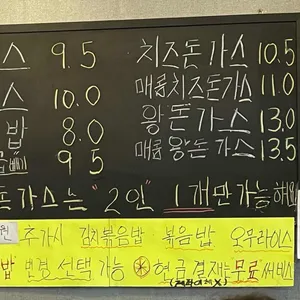 스 9.5 치즈돈가스 10.5
스 10.0 매콤치즈돈가스 11.0
밥 8.0 왕돈가스 13.0
9 5 매콤왕돈가스 13.5
돈가스는 "2인" 1개만 가능해
원 추가시 김치볶음밥 볶음밥 오무라이스
밥 변경 선택 가능 ※ 현금결재만 무료써비스